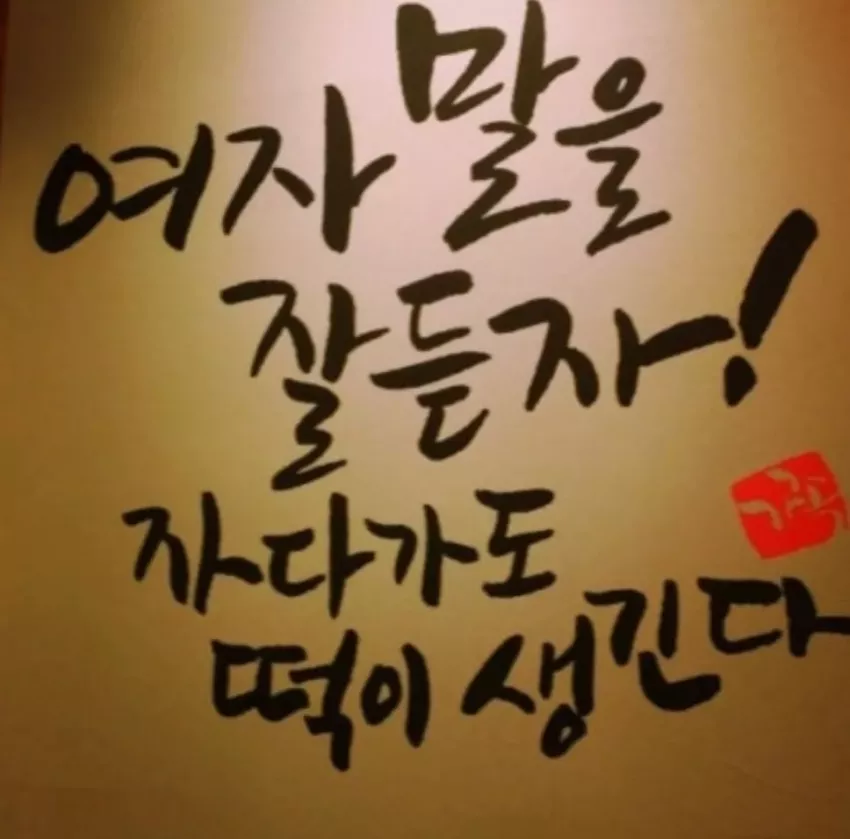 여자 말을
잘듣자!
자다가도
떡이 생긴다